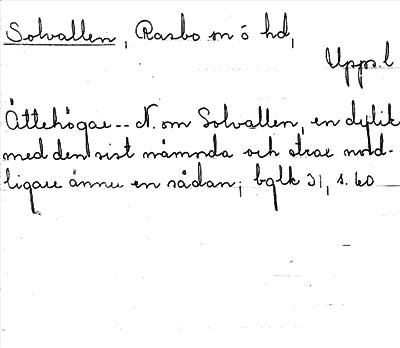 Solvallen, Rasbo sn ó hd,
Upps.l
Ättehögar -- N. om Solvallen, en dylik
med den sist nämnda och strax nord-
ligare ännu en sådan; bglk 31, s. 60